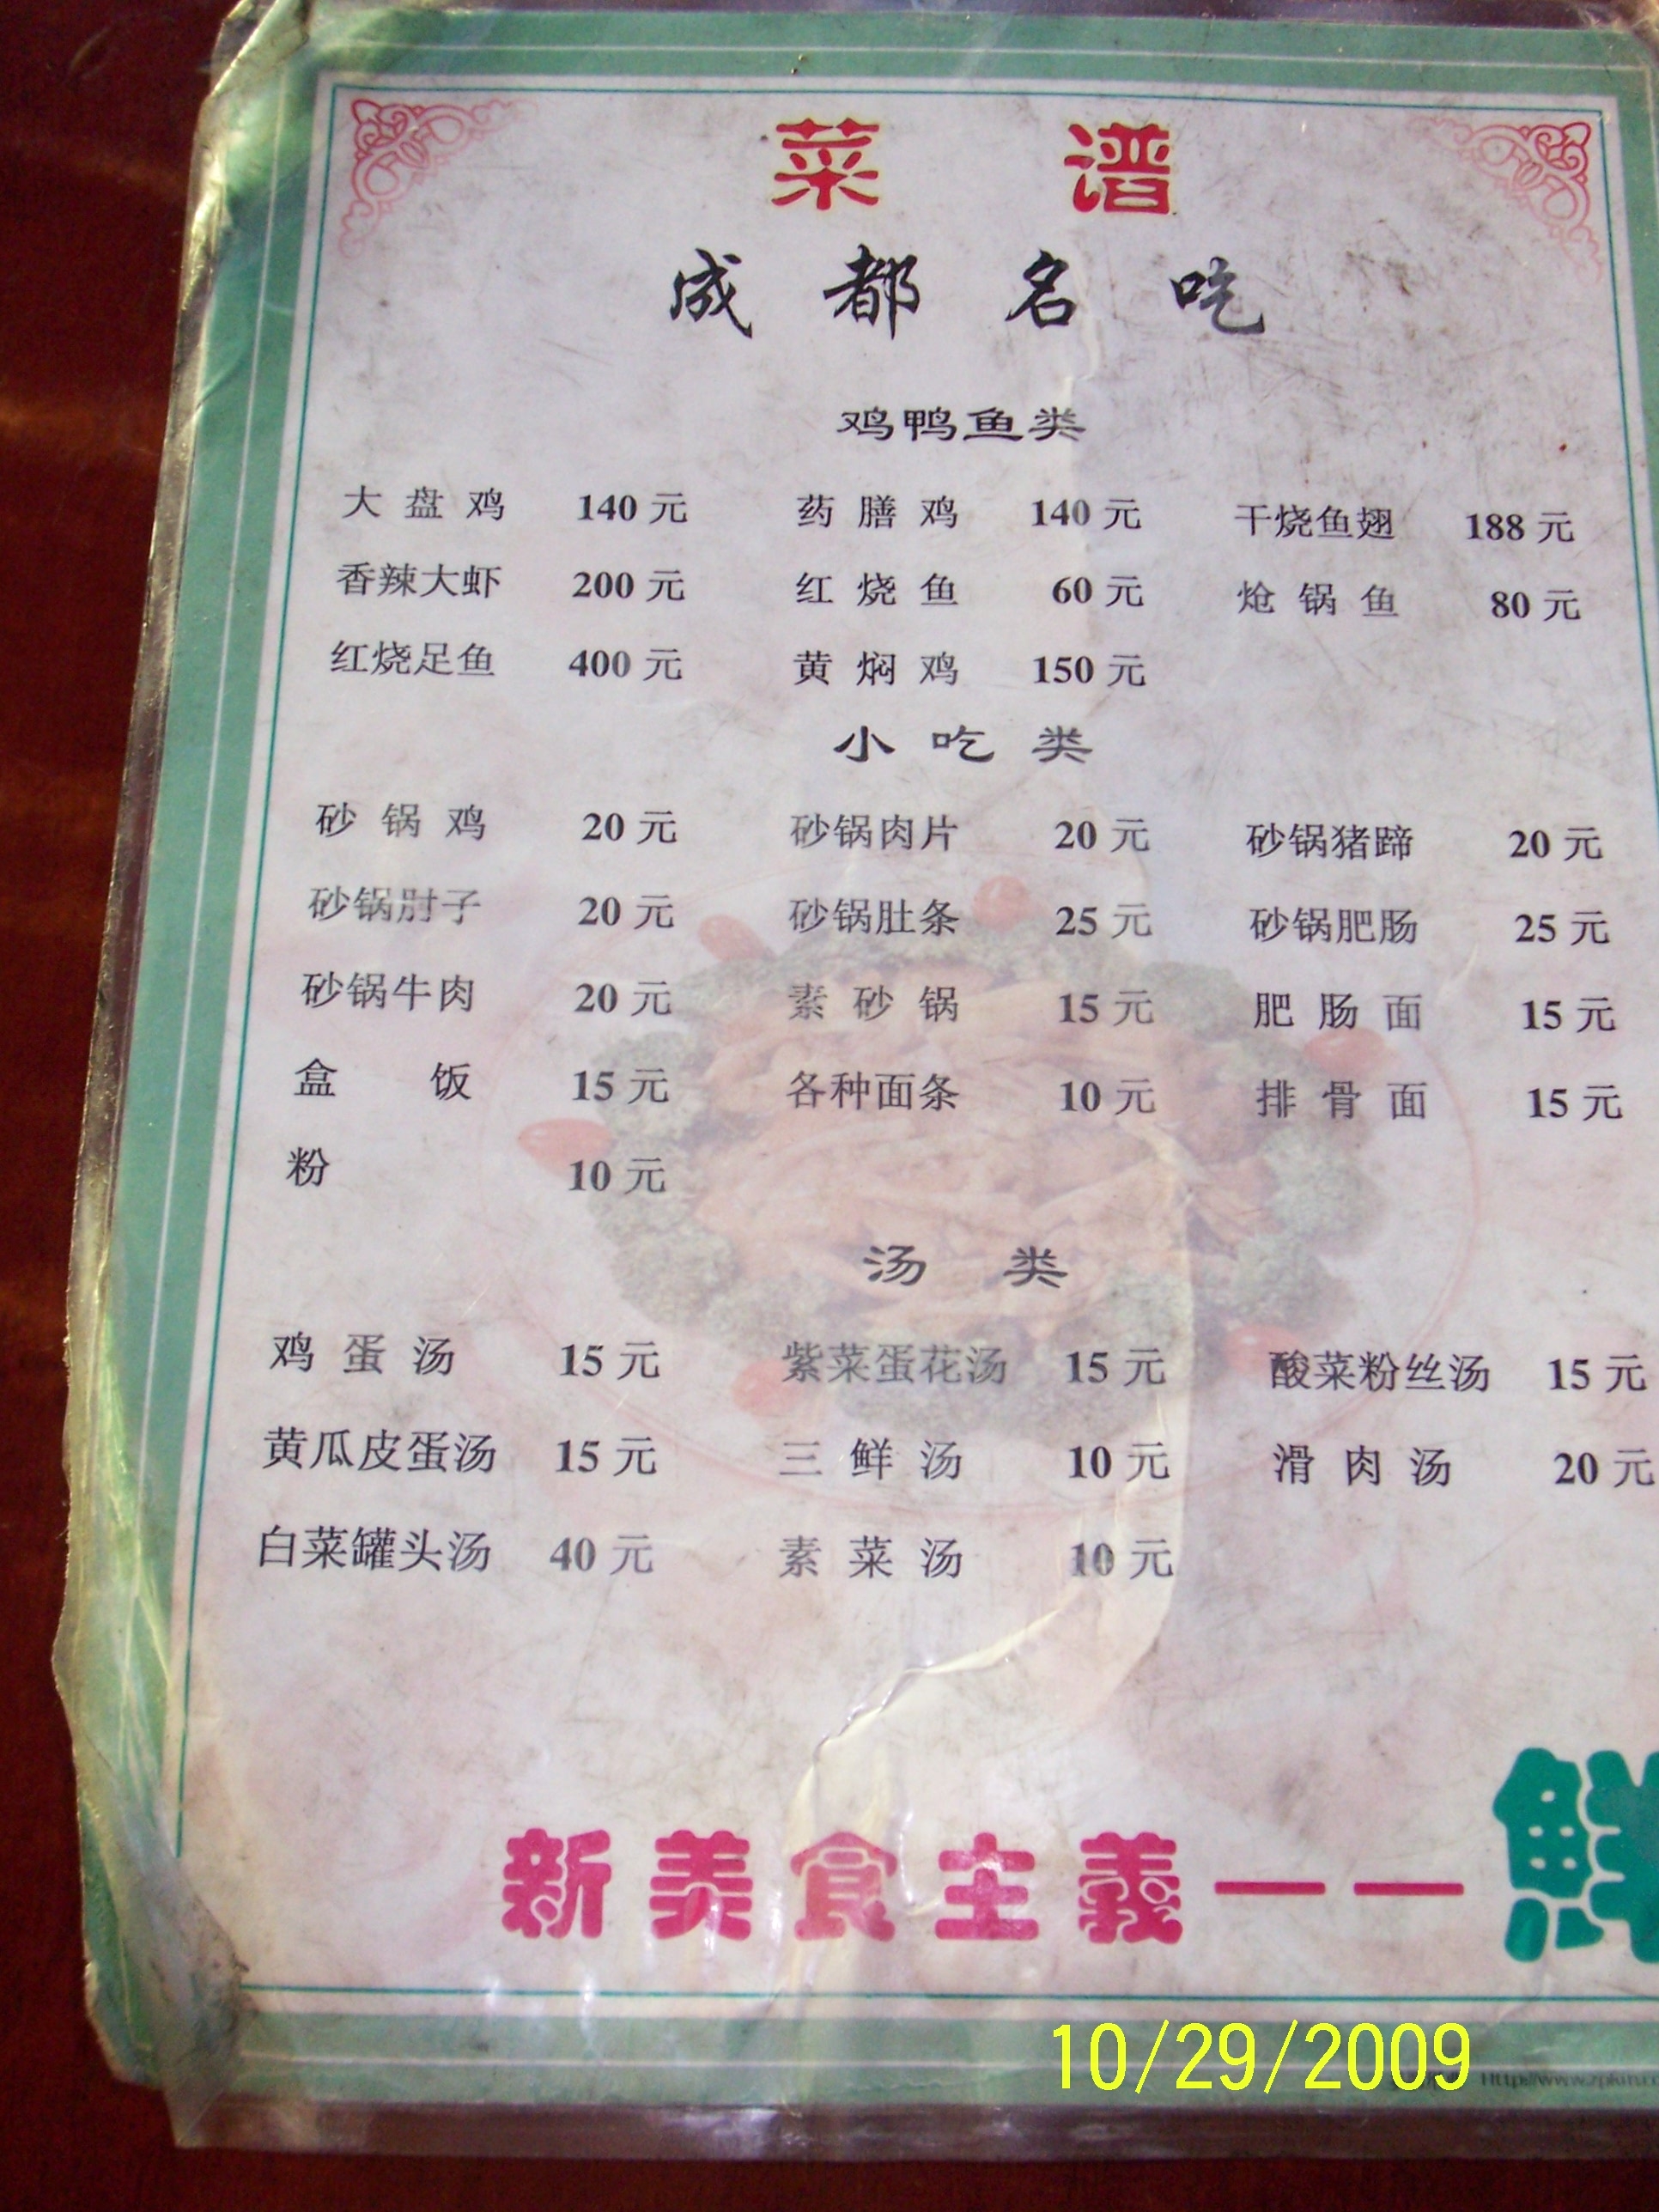 菜 谱
成 都 名 吃
鸡鸭鱼类
大 盘 鸡 140 元 药 膳 鸡 140 元 干烧鱼翅 188 元
香辣大虾 200 元 红 烧 鱼 60 元 炝 锅 鱼 80 元
红烧足鱼 400 元 黄 焖 鸡 150 元
小 吃 类
砂 锅 鸡 20 元 砂锅肉片 20 元 砂锅猪蹄 20 元
砂锅肘子 20 元 砂锅肚条 25 元 砂锅肥肠 25 元
砂锅牛肉 20 元 素 砂 锅 15 元 肥 肠 面 15 元
盒 饭 15 元 各种面条 10 元 排 骨 面 15 元
粉 10 元
汤 类
鸡 蛋 汤 15 元 紫菜蛋花汤 15 元 酸菜粉丝汤 15 元
黄瓜皮蛋汤 15 元 三 鲜 汤 10 元 滑 肉 汤 20 元
白菜罐头汤 40 元 素 菜 汤 10 元
新美食主義——鮮
10/29/2009